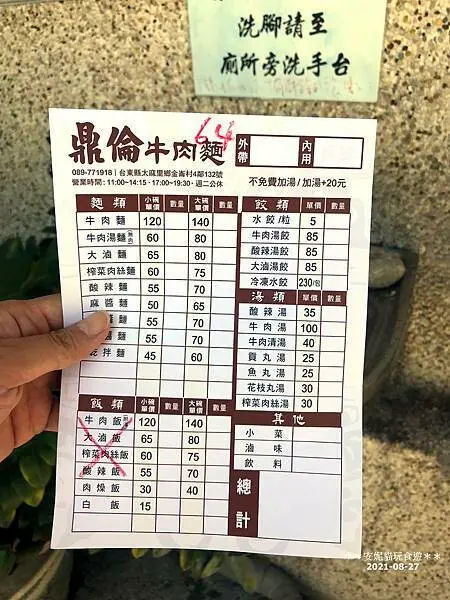 洗腳請至
廁所旁洗手台
鼎倫牛肉麵
64
外帶
內用
089-771918 | 台東縣太麻里鄉金崙村4鄰132號
營業時間:11:00~14:15‧17:00~19:30‧週二公休
不免費加湯/加湯+20元
麵類 小碗單價 數量 大碗單價 數量
牛肉麵 120 140
牛肉湯麵(無肉) 60 80
大滷麵 65 80
榨菜肉絲麵 60 75
酸辣麵 55 70
麻醬麵 50 65
麵 55 70
麵 55 70
乾拌麵 45 60
飯類 小碗單價 數量 大碗單價 數量
牛肉飯 120 140
大滷飯 65 80
榨菜肉絲飯 60 75
酸辣飯 55 70
肉燥飯 30 40
白飯 15
餃類 單價 數量
水餃/粒 5
牛肉湯餃 85
酸辣湯餃 85
大滷湯餃 85
冷凍水餃 230/包
湯類 單價 數量
酸辣湯 35
牛肉湯 100
牛肉清湯 40
貢丸湯 25
魚丸湯 25
花枝丸湯 30
榨菜肉絲湯 30
其他
小菜
滷味
飲料
總計
安妮貓玩食遊**
2021-08-27